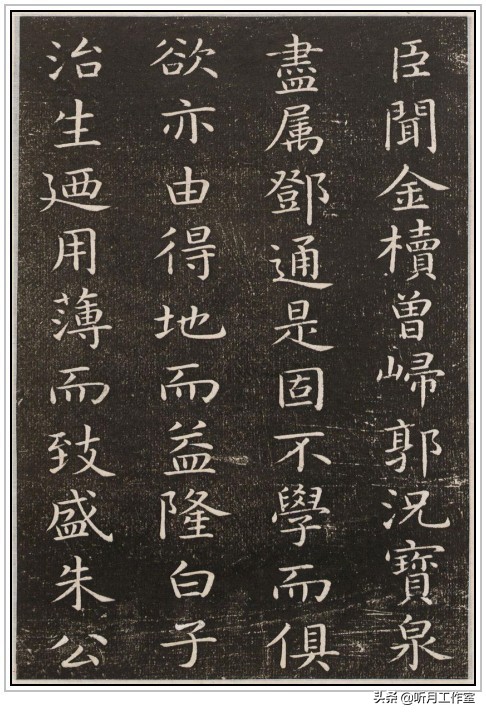 臣聞金櫝曾㱕郭況寶泉
盡属鄧通是固不學而俱
欲亦由得地而益隆白子
治生廼用薄而致盛朱公
头条 @听月工作室